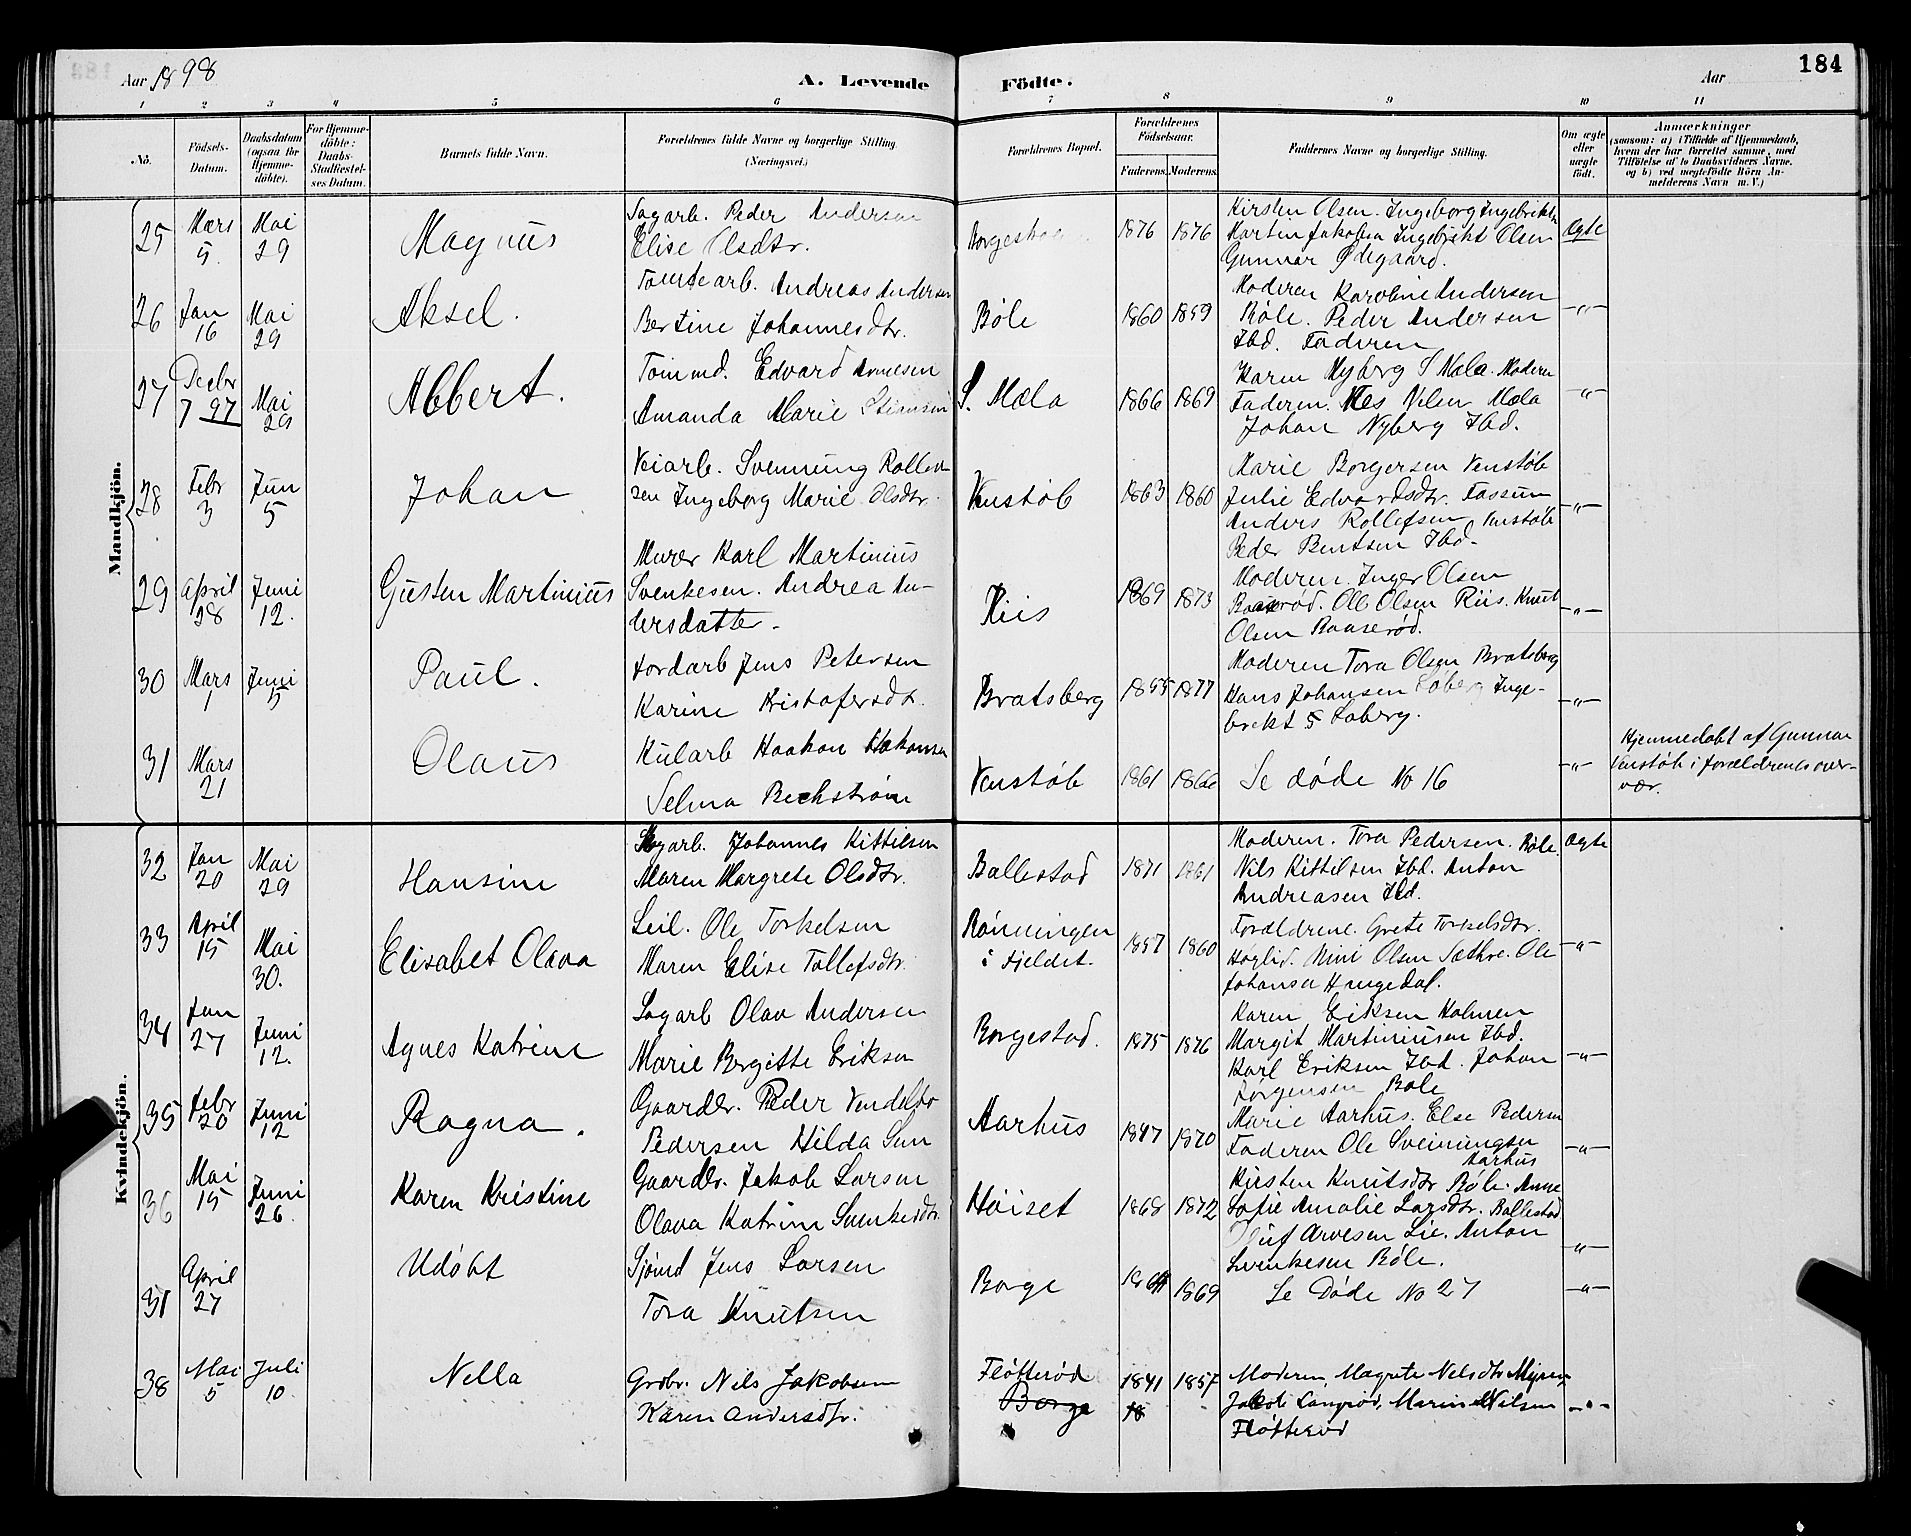 184
Aar 1898
A. Levende Födte.
Aar
1 2 3 4 5 6 7 8 9 10 11
No.
Födsels-Datum.
Daabsdatum (ogsaa for Hjemme-döbte).
For Hjemme-döbte: Daabs-Stadfæstel-ses Datum.
Barnets fulde Navn.
Forældrenes fulde Navne og borgerlige Stilling.
(Næringsvei.)
Forældrenes Bopæl.
Forældrenes Födselsaar.
Faderens. Moderens.
Faddernes Navne og borgerlige Stilling.
Om ægte eller uægte födt.
Anmærkninger
(saasom: a) i Tilfælde af Hjemmedaab,
hvem der har forrettet samme, med
Tilföielse af to Daabsvidners Navne,
og b) ved uægtefödte Börn An-
melderens Navn m. V.)
Mandkjön.
25 Mars 5. Mai 29 Magnus
Sagarb. Peder Andersen
Elise Olsdtr.
1876 1876
Kirsten Olsen. Ingeborg Ingebriktsen
Martin Jakobsen Ingebrikt Olsen
Gunnar Ødegaard.
Ægte
26 Jan 16 Mai 29 Aksel.
Tomtearb. Andreas Andersen
Bertine Johannesdtr.
Bøle 1860 1859
Moderen Karoline Andersen
Bøle. Peder Andersen
Ibd. Faderen
-"-
27 Decbr 7 97 Mai 29 Albert.
Tømmd. Edvard Arnesen
Amanda Marie
S. Mæla 1866 1869
Karen Nyberg S Mæla. Moderen
Faderen. Nilsen Mæla
Johan Nyberg Ibd.
-"-
28 Febr 3 Jun 5 Johan
Veiarb. Svennung Rollev-
sen Ingeborg Marie Olsdtr.
Venstøb 1863 1860
Marie Borgersen Venstøb
Julie Edvardsdtr. Fossum
Anders Rollefsen Venstøb
Peder Bentsen Ibd.
-"-
29 April 28 Juni 12. Gusten Martinius
Murer Karl Martinius
Svenkesen. Andrea An-
dersdatter.
Riis 1869 1873
Moderen. Inger Olsen
Baaserød. Ole Olsen Riis. Knut
Olsen Baaserød.
-"-
30 Mars 1 Juni 5 Paul.
Jordarb Jens Petersen
Karine Kristofersdtr.
Bratsberg 1855 1877
Moderen Tora Olsen Bratsberg
Hans Johansen Loberg Inge-
brekt S Loberg.
-"-
31 Mars 21 Olaus
Kularb Haakon Hakonsen
Selma Beckstrøm
Venstøb 1861 1866
Se døde No 16
-"-
Hjemmedøbt af Gunnar
Venstøb i forældrenes over-
vær.
Kvindekjön.
32 Jan 20 Mai 29 Hansine
Sagarb. Johannes Kittilsen
Maren Margrete Olsdtr.
Ballestad 1871 1861
Moderen. Tora Pedersen. Bøle.
Nils Kittilsen Ibd. Anton
Andreasen Ibd.
Ægte
33 April 15 Mai 30. Elisabet Olava
Leil. Ole Torkelsen
Maren Elise Tollefsdtr.
Rønningen
i Fjeldet. 1857 1860
Forældrene. Grete Torkelsdtr.
Høglid. Mini Olsen Sæthre. Ole
Johansen Haugedal.
-"-
34 Jan 27 Juni 12. Agnes Katrine
Sagarb Olav Andersen
Marie Bergitte Eriksen
Borgestad. 1875 1876
Karen Eriksen Holmen
Margit Martiniusen Ibd.
Karl Eriksen Ibd. Johan
Jørgensen Bøle
-"-
35 Febr 20 Juni 12 Ragna.
Gaardbr. Peder Vendelbo
Pedersen Hilda
Aarhus 1847 1870
Marie Aarhus. Else Pedersen
Faderen Ole Sveinungsen
Aarhus
-"-
36 Mai 15 Juni 26. Karen Kristine
Gaardbr. Jakob Larsen
Olava Katrine Svenkesdtr.
Høiset 1868 1872
Kirsten Knutsdtr Bøle. Anne
Sofie Amalie Larsdtr. Ballestad
Oluf Arvesen Lie. Anton
Svenkesen Bøle.
-"-
37 April 27 Udøbt
Sjømd Jens Larsen
Tora Knutsen
Borge 1869
Se Døde No 27
-"-
38 Mai 5 Juli 10 Nella
Grdbr. Nils Jakobsen
Karen Andersdtr.
Fløtterød
Borge
1841 1857
18
Moderen, Magrete Nelsdtr Myren,
Jakob Langrød, Marius Nilsen
Fløtterød
-"-